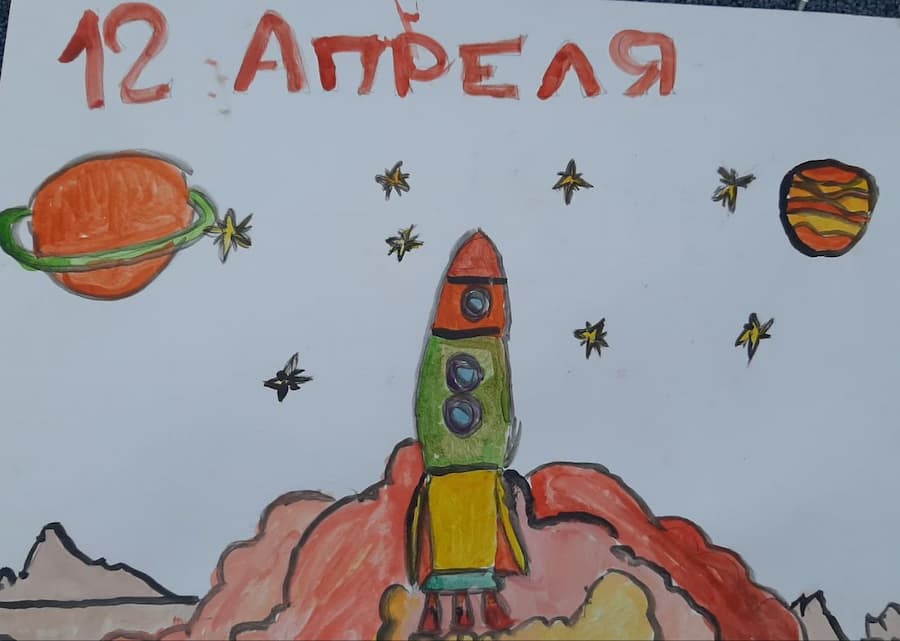 12 Апреля